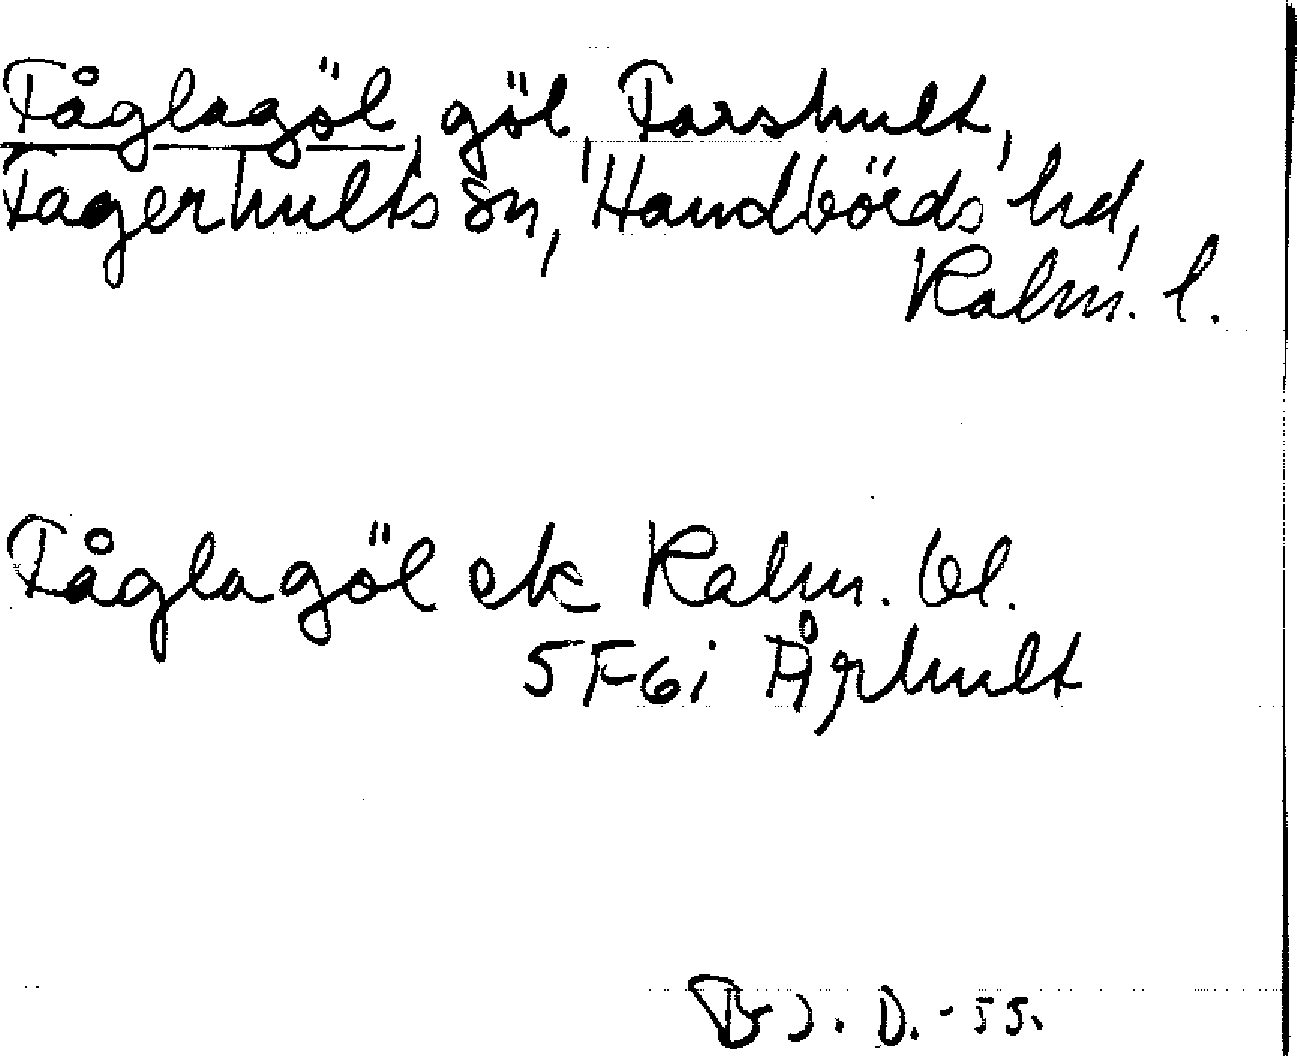 Fåglagöl, göl, Farshult,
Fagerhults sn, Handbörds hd,
Kalm. l.
Fåglagöl ek Kalm. bl.
5F6i Århult
Br J. D. -55.